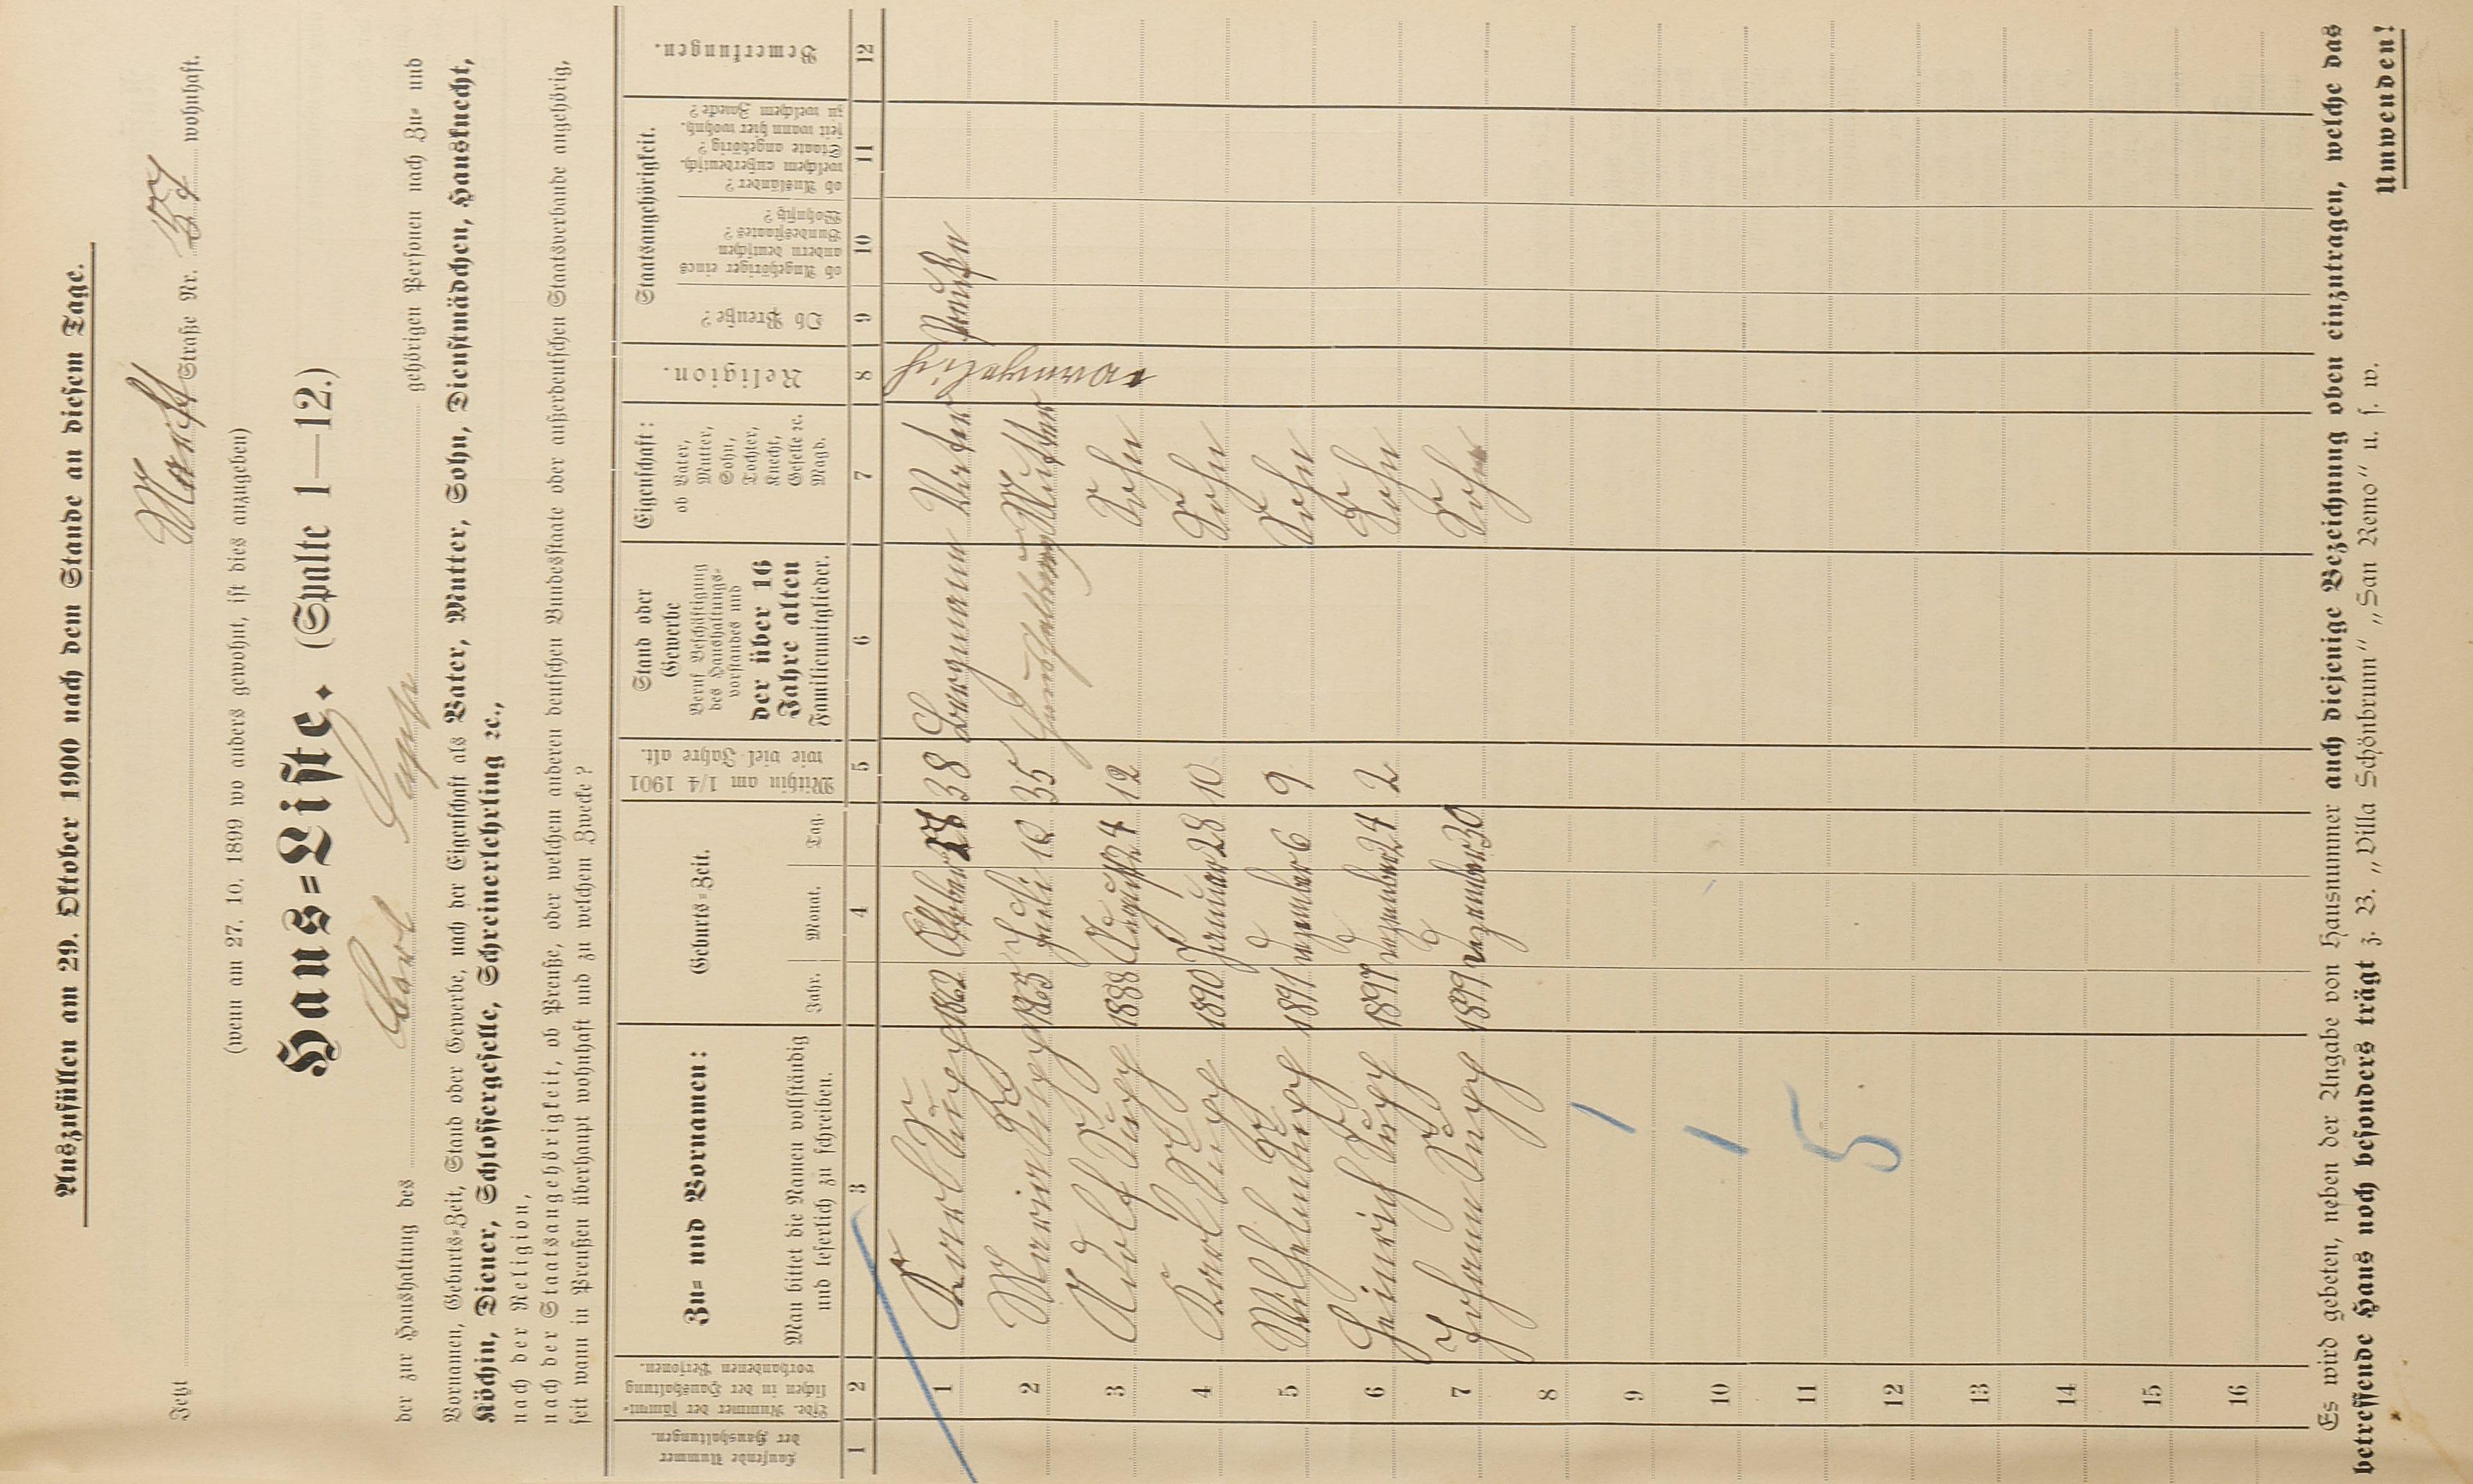 Auszufüllen am 29. Oktober 1900 nach dem Stande an diesem Tage.
Jetzt Markt Straße Nr. 37 wohnhaft.
(wenn am 27. 10. 1899 wo anders gewohnt, ist dies anzugeben)
Haus=Liste. (Spalte 1—12.)
der zur Haushaltung des Carl gehörigen Personen nach Zu= und
Vornamen, Geburts=Zeit, Stand oder Gewerbe, nach der Eigenschaft als Vater, Mutter, Sohn, Dienstmädchen, Hausknecht,
Köchin, Diener, Schlossergeselle, Schreinerlehrling ꝛc.,
nach der Religion,
nach der Staatsangehörigkeit, ob Preuße, oder welchem anderen deutschen Bundesstaate oder außerdeutschen Staatsverbande angehörig,
seit wann in Preußen überhaupt wohnhaft und zu welchem Zwecke?
Laufende Nummer der Haushaltungen.
Lfde. Nummer der sämmtlichen in der Haushaltung vorhandenen Personen.
Zu= und Vornamen:
Man bittet die Namen vollständig und leserlich zu schreiben.
Geburts=Zeit.
Jahr. Monat. Tag.
Mithin am 1/4 1901 wie viel Jahre alt.
Stand oder Gewerbe
Beruf Beschäftigung des Haushaltungs=vorstandes und
der über 16 Jahre alten Familienmitglieder.
Eigenschaft:
ob Vater, Mutter, Sohn, Tochter, Knecht, Geselle ꝛc. Magd.
Religion.
Staatsangehörigkeit.
Ob Preuße?
ob Angehöriger eines andern deutschen Bundesstaates? Wohnsitz?
ob Ausländer? welchem außerdeutsch. Staate angehörig? seit wann hier wohnh. zu welchem Zwecke?
Bemerkungen.
1 2 3 4 5 6 7 8 9 10 11 12
1 Karl 1862 Oktober 27 38 Bergmann Vater evangelisch Preußen
2 Maria 1865 Juli 12 35 Haushaltung Mutter
3 Adolf 1888 August 24 12 Sohn
4 Karl 1890 Januar 28 10 Sohn
5 Wilhelm 1891 Dezember 6 9 Sohn
6 Heinrich 1897 Dezember 24 2 Sohn
7 Johann 1899 Dezember 30 Sohn
8
9
10
11
12
13
14
15
16
1
1
5
Es wird gebeten, neben der Angabe von Hausnummer auch diejenige Bezeichnung oben einzutragen, welche das
betreffende Haus noch besonders trägt z. B. „Villa Schönbrunn“ „San Remo“ u. s. w.
Umwenden!